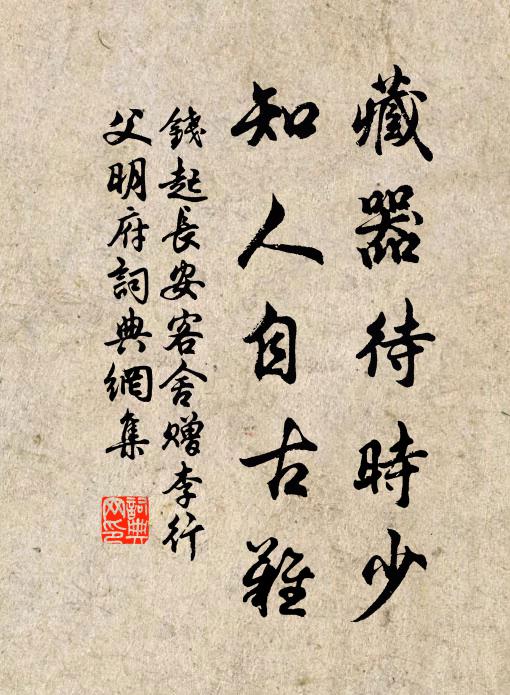 藏器待時少
知人自古難
錢起長安客舍贈李行
父明府詞典網集
詞典
网印